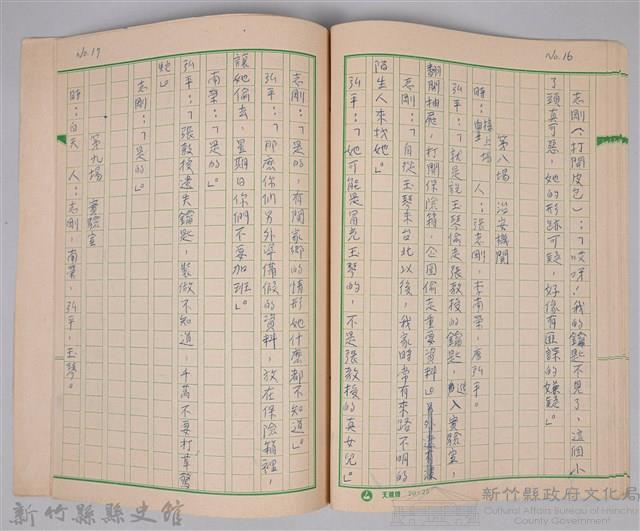 No.16
志剛（打開皮包）：「哎呀！我的鑰匙不見了，這個小
丫頭真可惡，她的形跡可疑，好像有匪諜的嫌疑」。
第八場　治安機關
時：接上場　人：張志剛，李南榮，唐弘平。
弘平：「就是說玉琴偷走張教授的鑰匙，進入實驗室，
翻開抽屜，打開保險箱，企圖偷走重要資料」。
志剛：「自從玉琴來台北以後，我家時常有來路不明的
陌生人來找她」。
弘平：「她可能是冒充玉琴的，不是張教授的真女兒」。
天鵝牌 24×25
No.17
志剛：「是的，有關家鄉的情形她什麼都不知道」。
弘平：「那麼你們另外準備假的資料，放在保險箱裡，
讓她偷去，星期日你們不要加班」。
南榮：「是的」。
弘平：「張教授遺失鑰匙，裝做不知道，千萬不要打草驚
蛇」。
志剛：「是的」。
第九場　實驗室
時：白天　人：志剛，南榮，弘平，玉琴。
新竹縣縣史館
新竹縣政府文化局
Cultural Affairs Bureau of Hsinchu
County Government